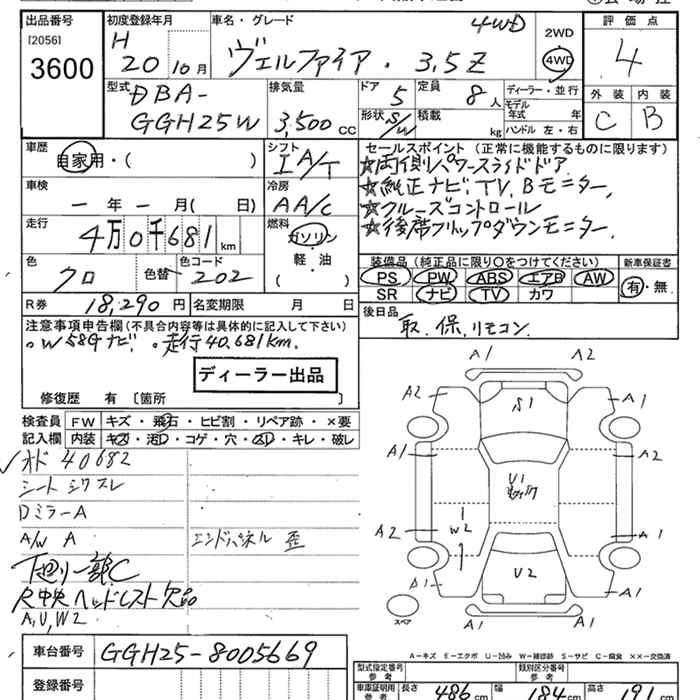 出品番号 初度登録年月 車名・グレード 4WD 2WD 評価点
[2056] H ヴェルファイア・3.5Z 4WD 4
3600 20 10月
型式 排気量 ドア 定員 ディーラー・並行 外装 内装
DBA- 5 8人 モデル年式 年 C B
GGH25W 3,500cc 形状 S/W 積載 kg ハンドル 左・右
車歴 シフト セールスポイント (正常に機能するものに限ります)
自家用・( ) IA/T ☆両側パワースライドドア
車検 冷房 ☆純正ナビ、TV、Bモニター、
ー年ー月( 日) AA/C ☆クルーズコントロール
走行 燃料 ☆後席フリップダウンモニター
4万0千681km ガソリン
色 色替 色コード 軽・油 装備品(純正品に限り〇をつけてください) 新車保証書
クロ 202 ( ) PS PW ABS エアB AW 有・無
SR ナビ TV カワ
R券 18,290円 名変期限 月 日 後日品
取、保、リモコン
注意事項申告欄(不具合内容等は具体的に記入して下さい)
。W58Gナビ 。走行40,681km.
ディーラー出品
修復歴 有 〔箇所 〕
検査員 FW キズ・飛石・ヒビ割・リペア跡・×要
記入欄 内装 キズ・汚レ・コゲ・穴・ヌレ・キレ・破レ
オド 40682
シート シワ スレ
DミラーA
A/W A エンドパネル 歪
下廻リ一部C
R中央ヘッドレスト欠品
A,U,W2
A1 A2
A2 S1 A1
A1 A2
U1
A2 W2 A1
A1 U2 A1
スペア A1 A1
車台番号 GGH25-8005669
A-キズ E-エクボ U-凹み W-補修跡 S-サビ C-腐食 ××-交換済
登録番号 型式指定番号 参考 類別区分番号 参考
車庫証明用 参考 長さ 486cm 幅 184cm 高さ 191cm